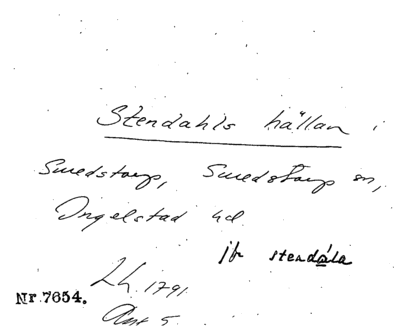 Stendahls hällan i
Smedstorp, Smedstorp sn,
Ingelstad hd
jfr stendåla
Lh. 1791
Nr. 7654.
Ant 5